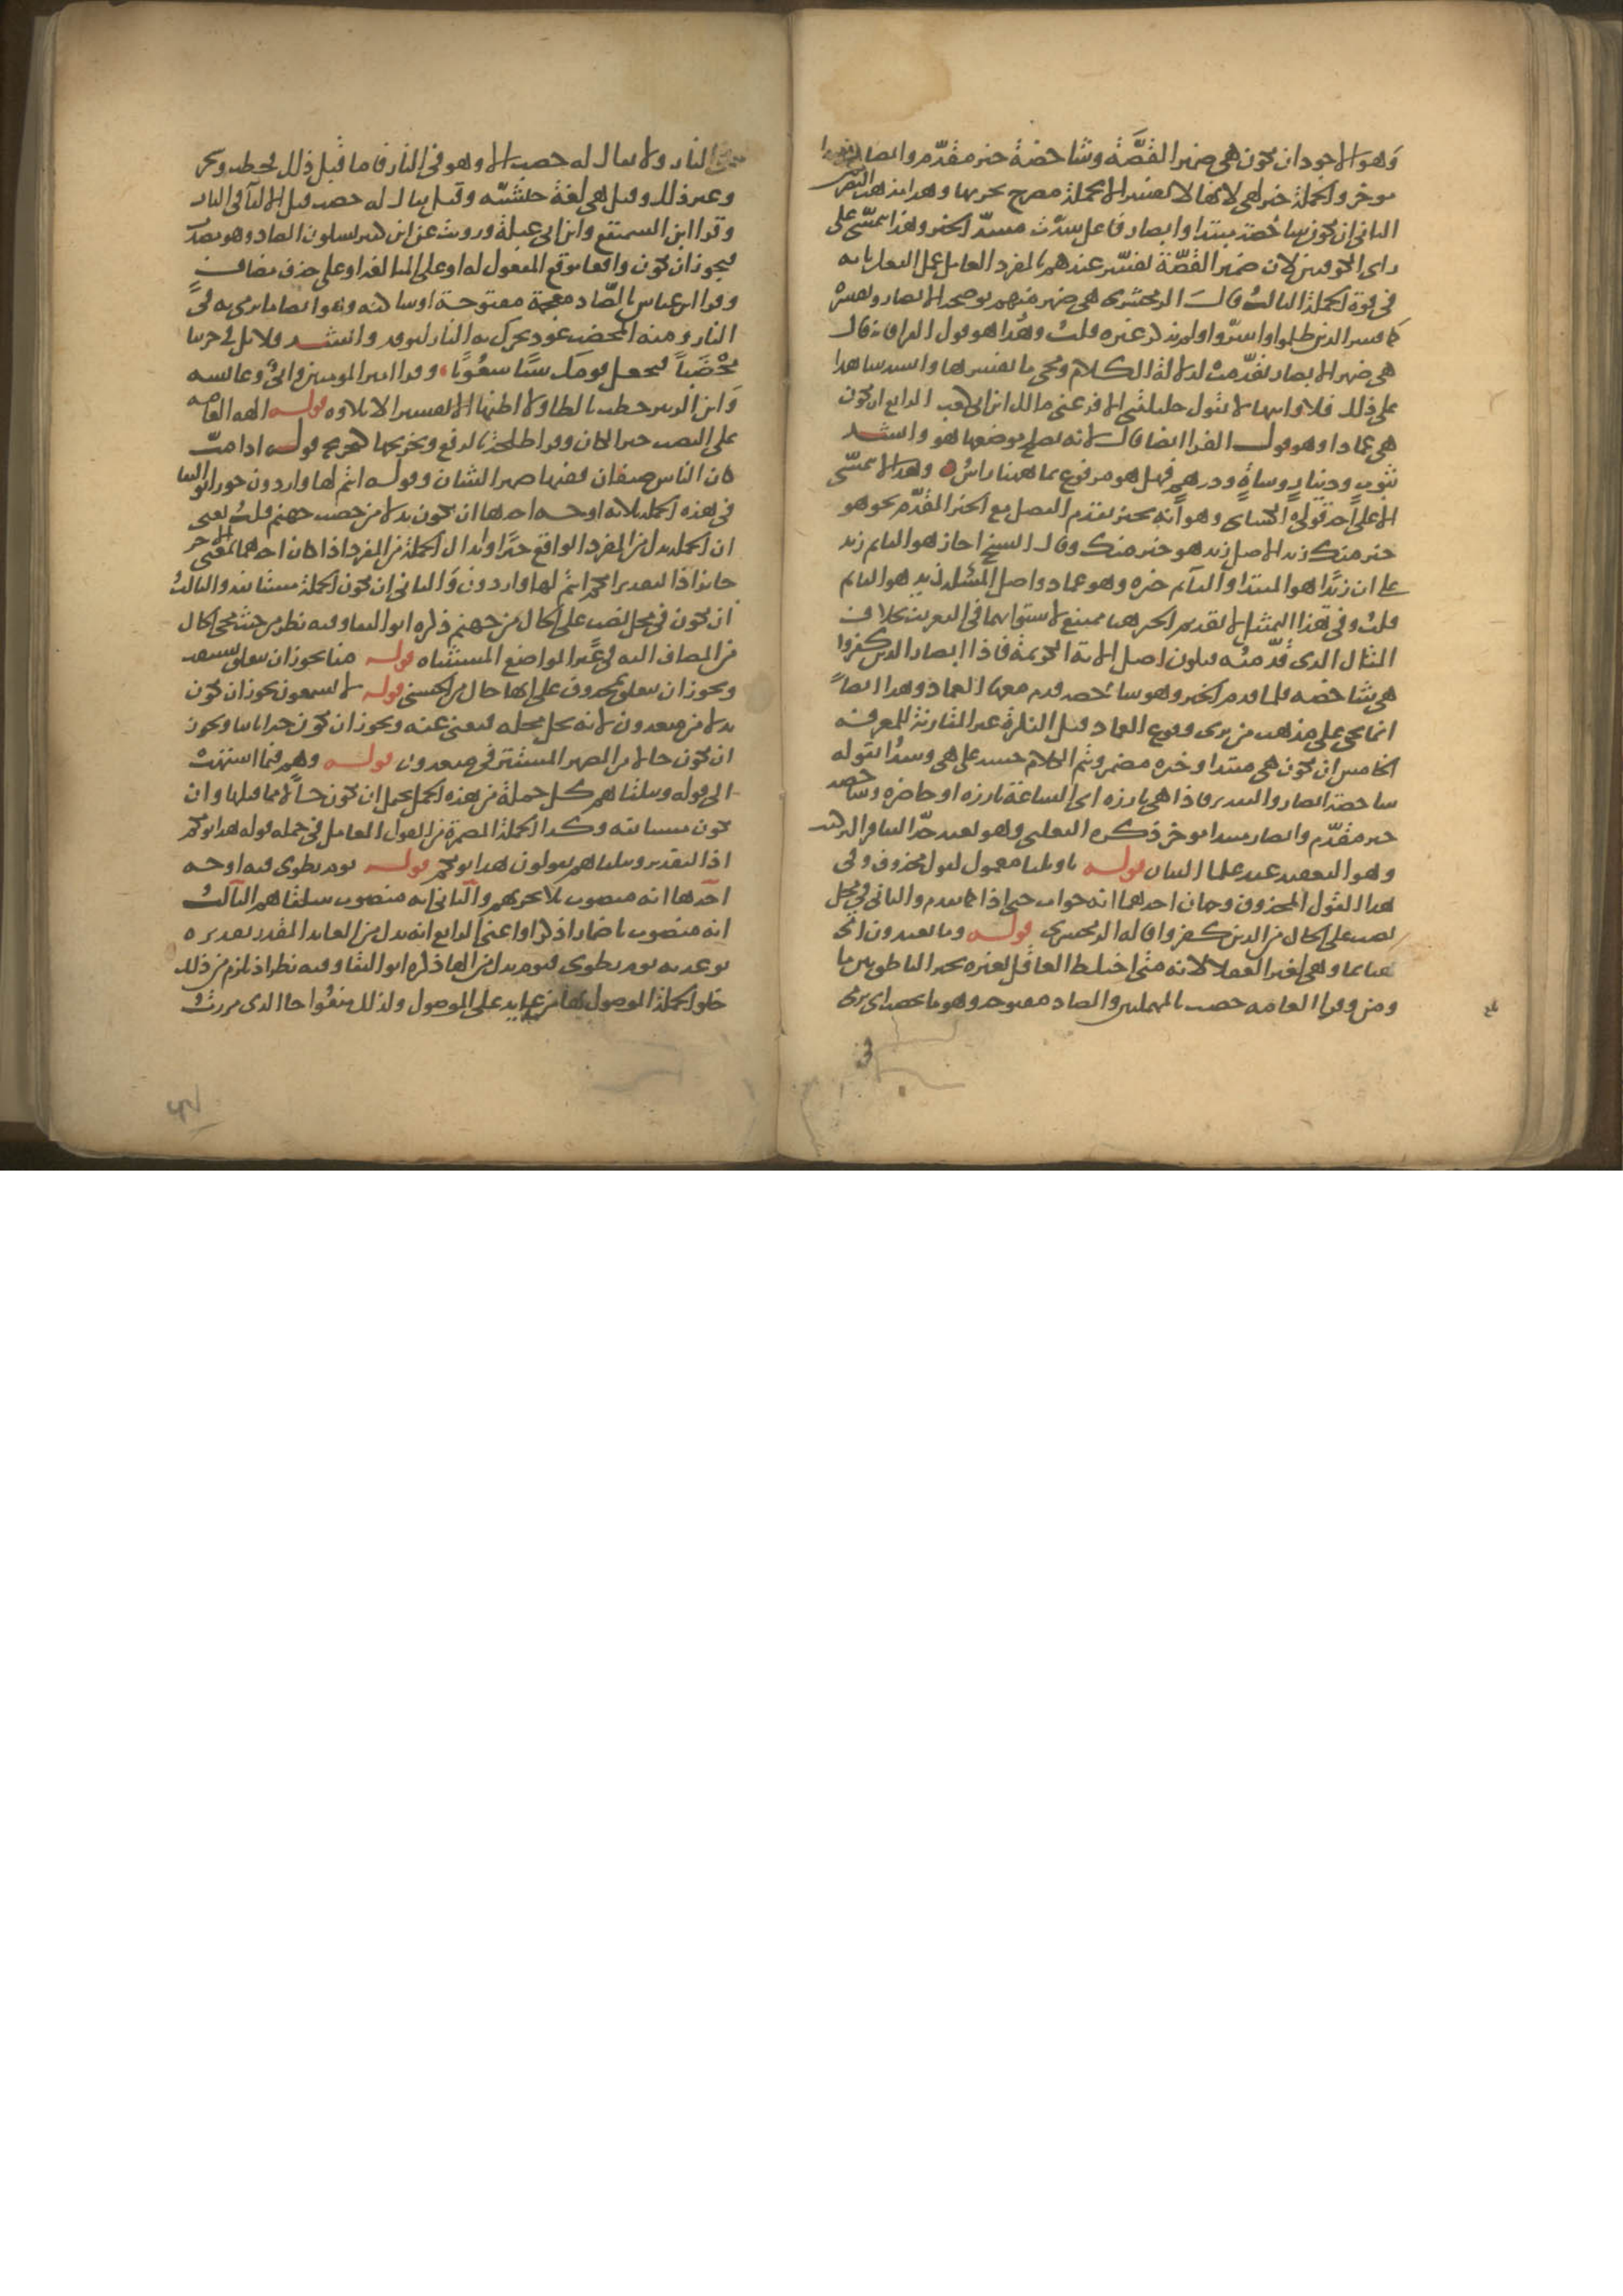 وهو الاجود ان تكون هي ضمير القصة وشاخصة خبر مقدم وابصار
موخر والجملة خبر لهي لانها لا تفسر الا بجملة مصرح بجزيها وهذا مذهب البصر
الثاني ان تكون شاخصة مبتدا وابصار فاعل سدت مسد الخبر وهذا يتمشى على
راي الكوفيين لان ضمير القصة تفسر عندهم بالمفرد العامل عمل الفعل فانه
في قوة الجملة الثالث قال الزمخشري هي ضمير مبهم توضحه الابصار وتفسره
كما فسر الذين ظلموا واسروا ولم يذكر غيره قلت وهذا هو قول الفرا فانه قال
هي ضمير الابصار تقدمت لدلالة الكلام ومجي ما يفسرها وانشد شاهدا
على ذلك فلا وابيها لا تقول خليلتي الا فر عني مالك ابن ابي كعب الرابع ان تكون
هي عمادا وهو قول الفرا ايضا قال لانه يصلح موضعها هو وانشد
بثوب ودينار وشاة ودرهم فهل هو مرفوع بما ههنا راس وهذا لا يتمشى
الا على احد قولي الكسائي وهو انه يجيز تقدم الفصل مع الخبر المقدم نحو هو
خير منك زيد الاصل زيد هو خير منك وقال الشيخ اجاز هو القايم زيد
على ان زيدا هو المبتدا والقايم خبره وهو عماد واصل المسئلة زيد هو القايم
قلت وفي هذا التمثيل لا تقديم الخبر هنا ممتنع لاستوايهما في التعريف بخلاف
المثال الذي قدمته فيكون اصل الاية الكريمة فاذا ابصار الذين كفروا
هي شاخصة فلما قدم الخبر وهو شاخصة قدم معها العماد وهذا ايضا
انما يجي على مذهب من يرى وقوع العماد قبل النكرة غير المقارنة للمعرفة
الخامس ان تكون هي مبتدا وخبره مضمر ويتم الكلام حينئذ على هي ويبتدا بقوله
شاخصة ابصار والتقدير فاذا هي بارزة اي الساعة بارزة او حاضرة وشاخصة
خبر مقدم وابصار مبتدا موخر ذكره الثعلبي وهو بعيد جدا لتنافر التركيب
وهو التعقيد عند علما البيان قوله يا ويلنا معمول لقول محذوف وفي
هذا القول المحذوف وجهان احدهما انه جواب حتى اذا كما تقدم والثاني في محل
نصب على الحال من الذين كفروا قاله الزمخشري قوله وما تعبدون اتى
هنا بما وهي لغير العقلا لانه متى اختلط العاقل بغيره تخير الناطق بين ما
ومن وقرا العامة حصب بالمهملتين والصاد مفتوحة وهو ما يحصب اي يرمى
في
النار ولا يقال له حصب الا وهو في النار فاما قبل ذلك فحطب وشجر
وغير ذلك وقيل هي لغة حبشية وقيل يقال له حصب قبل الالقا في النار
وقرا ابن السميفع وابن ابي عبلة ورويت عن ابن كثير بسكون الصاد وهو مصدر
فيجوز ان يكون واقعا موقع المفعول له او على المبالغة او على حذف مضاف
وقرا ابن عباس بالضاد معجمة مفتوحة او ساكنة وهو ايضا ما يرمى به في
النار ومنه المحضب عود يحرك به النار ليوقد وانشد فلا تك في حربنا
محضبا فتجعل قومك شتا شعوبا وقرا امير المومنين وابي وعايشة
وابن الزبير حطب بالطا ولا اظنها الا تفسيرا لا تلاوة قوله الهة العامة
على النصب خبرا لكان وقرا طلحة بالرفع وتخريجها كتخريج قوله اذا مت
كان الناس صنفان ففيها ضمير الشان وقوله انتم لها واردون جوز ابو البقا
في هذه الجملة ثلاثة اوجه احدها ان تكون بدلا من حصب جهنم قلت يعني
ان الجملة بدل من المفرد الواقع خبرا وابدال الجملة من المفرد اذا كان احدهما بمعنى الاخر
جايز اذ التقدير انكم انتم لها واردون والثاني ان تكون الجملة مستانفة والثالث
ان تكون في محل نصب على الحال من جهنم ذكره ابو البقا وفيه نظر من حيث مجي الحال
من المضاف اليه في غير المواضع المستثناة قوله منا يجوز ان يتعلق بسبقت
ويجوز ان يتعلق بمحذوف على انها حال من الحسنى قوله لا يسمعون يجوز ان تكون
بدلا من مبعدون لانه يحل محله فيغني عنه ويجوز ان تكون خبرا ثانيا ويجوز
ان تكون حالا من الضمير المستتر في مبعدون قوله وهم فيما اشتهت
الى قوله وتتلقاهم كل جملة من هذه الجمل يحتمل ان تكون حالا مما قبلها وان
تكون مستانفة وكذا الجملة المضمرة من القول العامل في جملة قوله هذا يومكم
اذ التقدير وتتلقاهم يقولون هذا يومكم قوله يوم نطوي فيه اوجه
احدها انه منصوب بلا يحزنهم والثاني انه منصوب بتتلقاهم الثالث
انه منصوب باضمار اذكر او اعني الرابع انه بدل من العايد المقدر تقديره
توعدونه يوم نطوي فيوم بدل من الها ذكره ابو البقا وفيه نظر اذ يلزم من ذلك
خلو الجملة الموصول بها من عايد على الموصول ولذلك منعوا جا الذي مررت